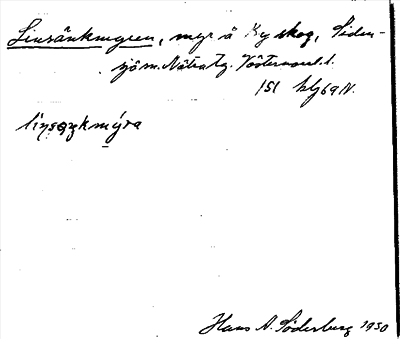 Linsänkmyren, myr å Ky skog, Siden-
sjö sn. Nätra tg. Västernorrl. l.
151 blg 69 N.
linsäŋkmýra
Hans A. Söderberg 1930